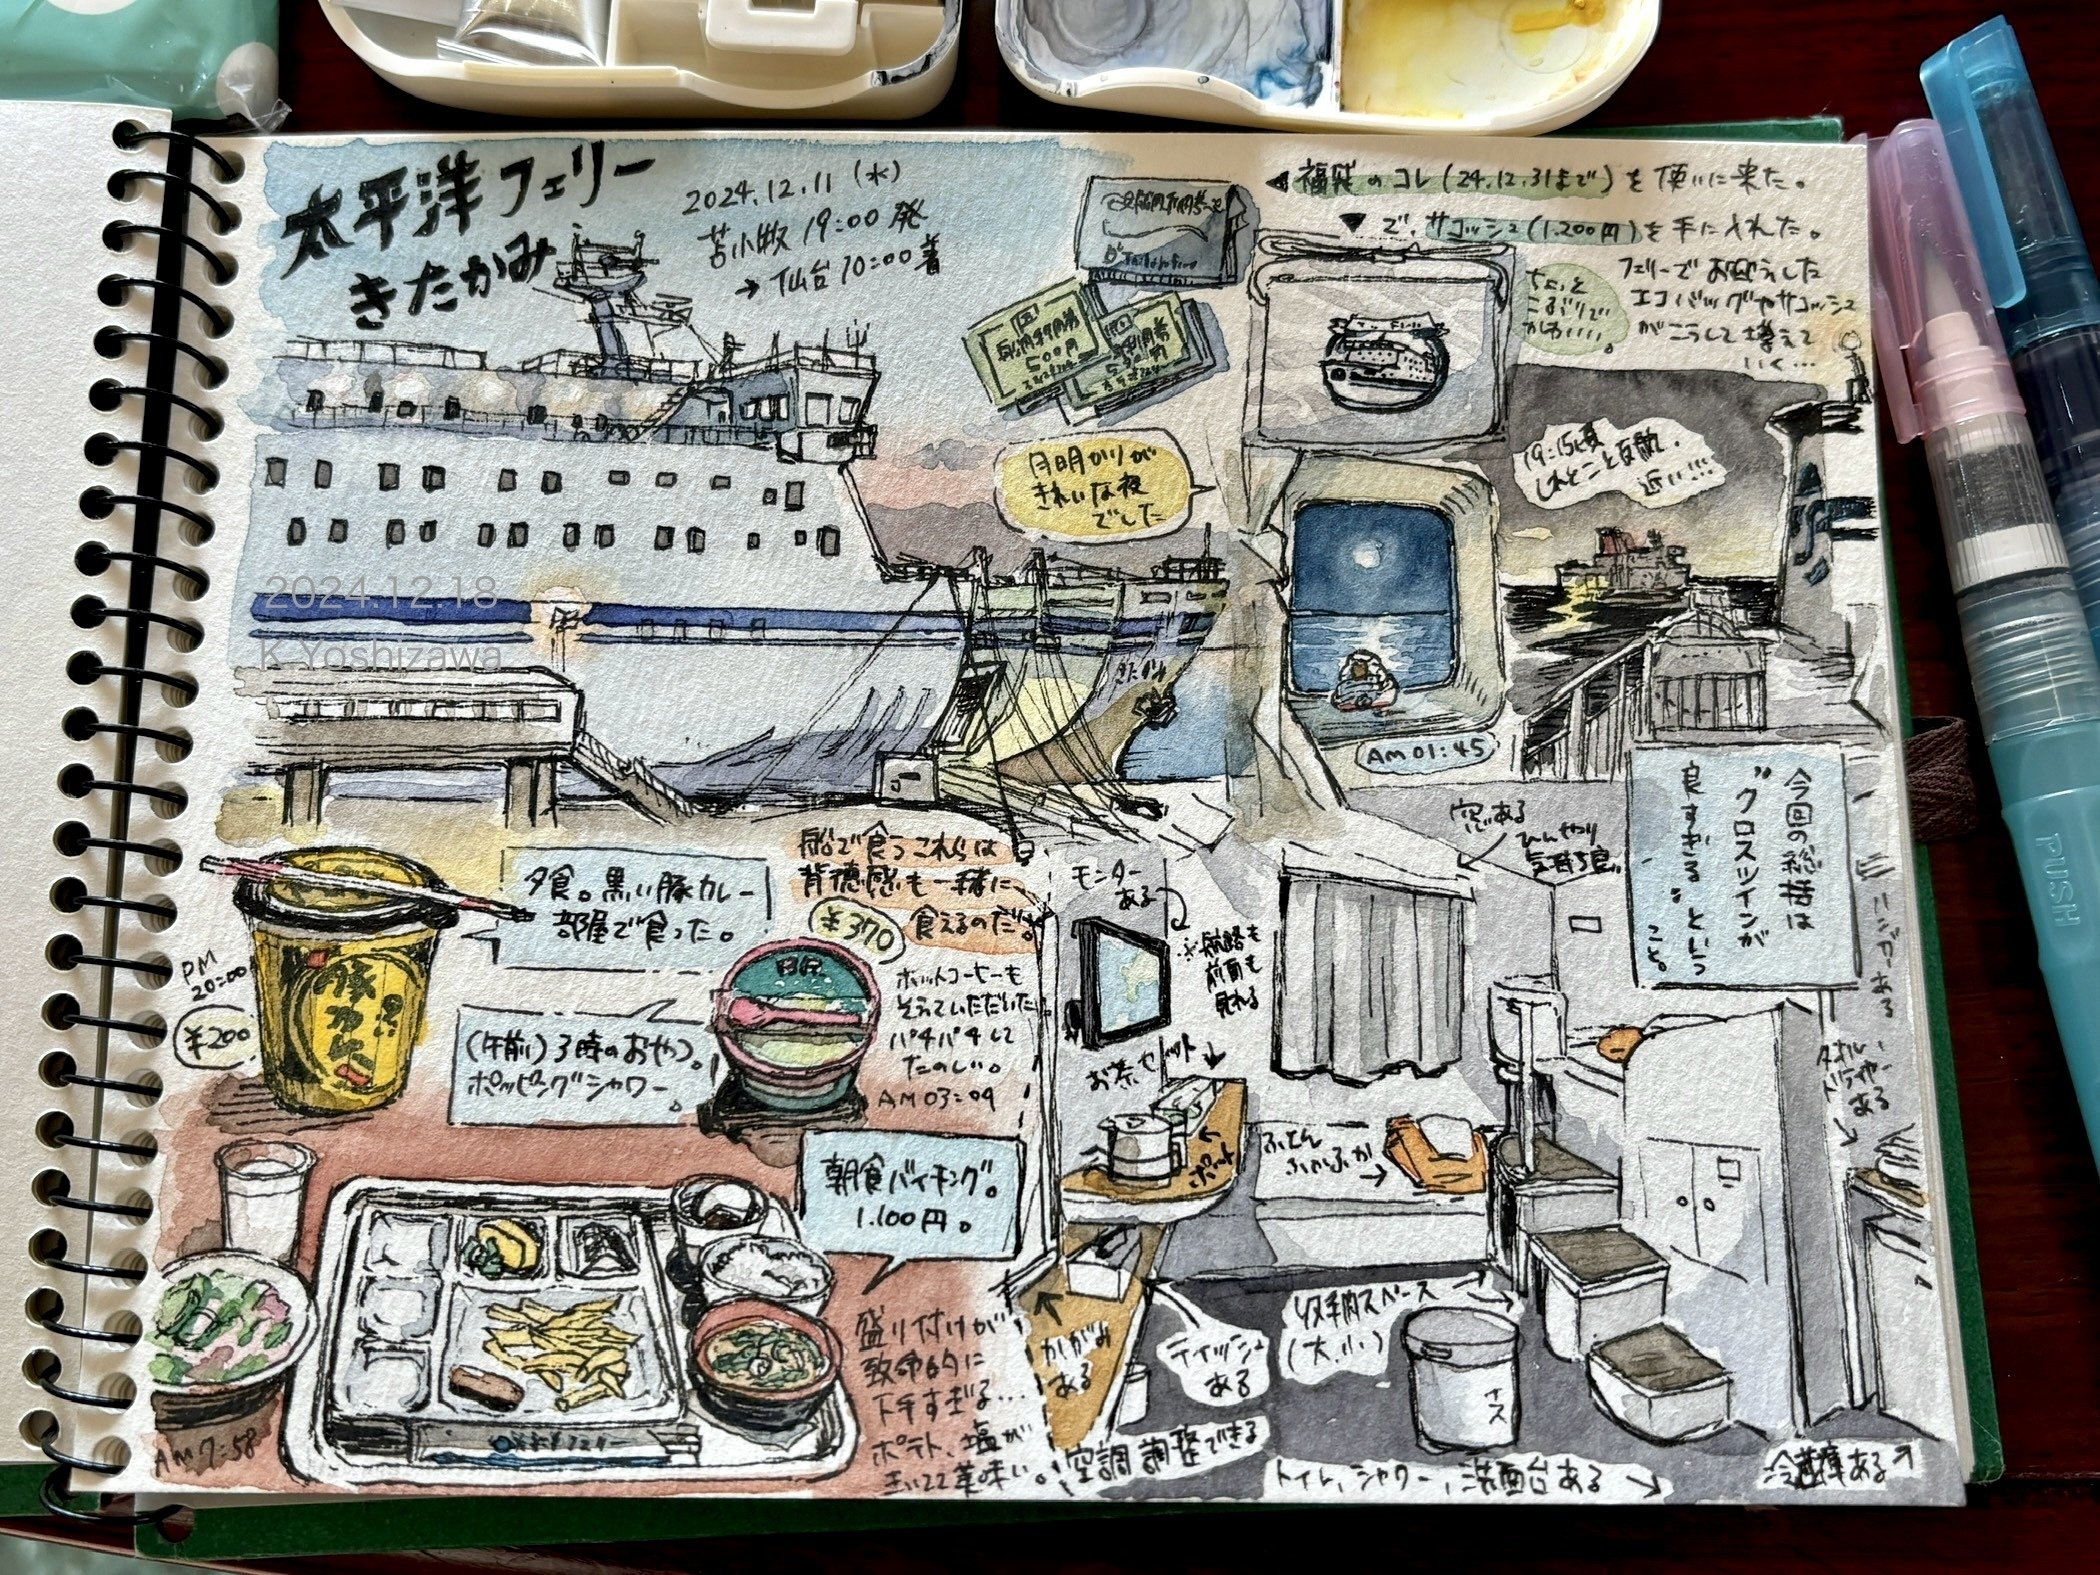 太平洋フェリー
きたかみ
2024.12.11(水)
苫小牧 19:00発
→仙台 10:00着
船内利用券
500円
◀福袋のコレ(24.12.31まで)を使いに来た。
▼で、サコッシュ(1.200円)を手に入れた。
フェリーでお迎えした
エコバッグやサコッシュ
がこうして増えて
いく…
ちょっと
こぶりで
かわいい。
月明かりが
きれいな夜
でした
19:15頃
しれとこと反航。
近い!!!
きたかみ
AM 01:45
2024.12.18
K.Yoshizawa
今回の総括は
"クロスツインが
良すぎる"という
こと。
夕食。黒い豚カレー
部屋で食った。
PM
20:00
¥200
黒い
豚カレー
船で食うこれらは
背徳感も一緒に
食えるのだ。
¥370
(午前)3時のおやつ。
ポッピングシャワー。
ホットコーヒーも
そえていただいた。
パチパチして
たのしい。
AM 03:04
朝食バイキング。
1.100円。
AM 7:58
盛り付けが
致命的に
下手すぎる…
ポテト、塩が
美味い。
モニター
ある
※航路も
前面も
見れる
窓ある
ひんやり
気持ち良い
ハンガーある
お茶セット
ポット
ふとん
ふかふか
タオル、
ドライヤー
ある
かがみ
ある
ティッシュ
ある
収納スペース
(大、小)
ナス
空調調整できる
トイレ、シャワー、洗面台ある→
冷蔵庫ある
PUSH